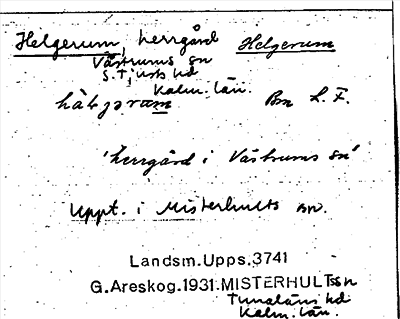 Helgerum, herrgård Helgerum
Västrums sn
S. Tjusts hd
Kalm. län.
Bm L. F.
'herrgård i Västrums sn'
Uppt. i Misterhults sn.
Landsm.Upps.3741
G.Areskog.1931.MISTERHULTssn
Tunaläns hd
Kalm. län.